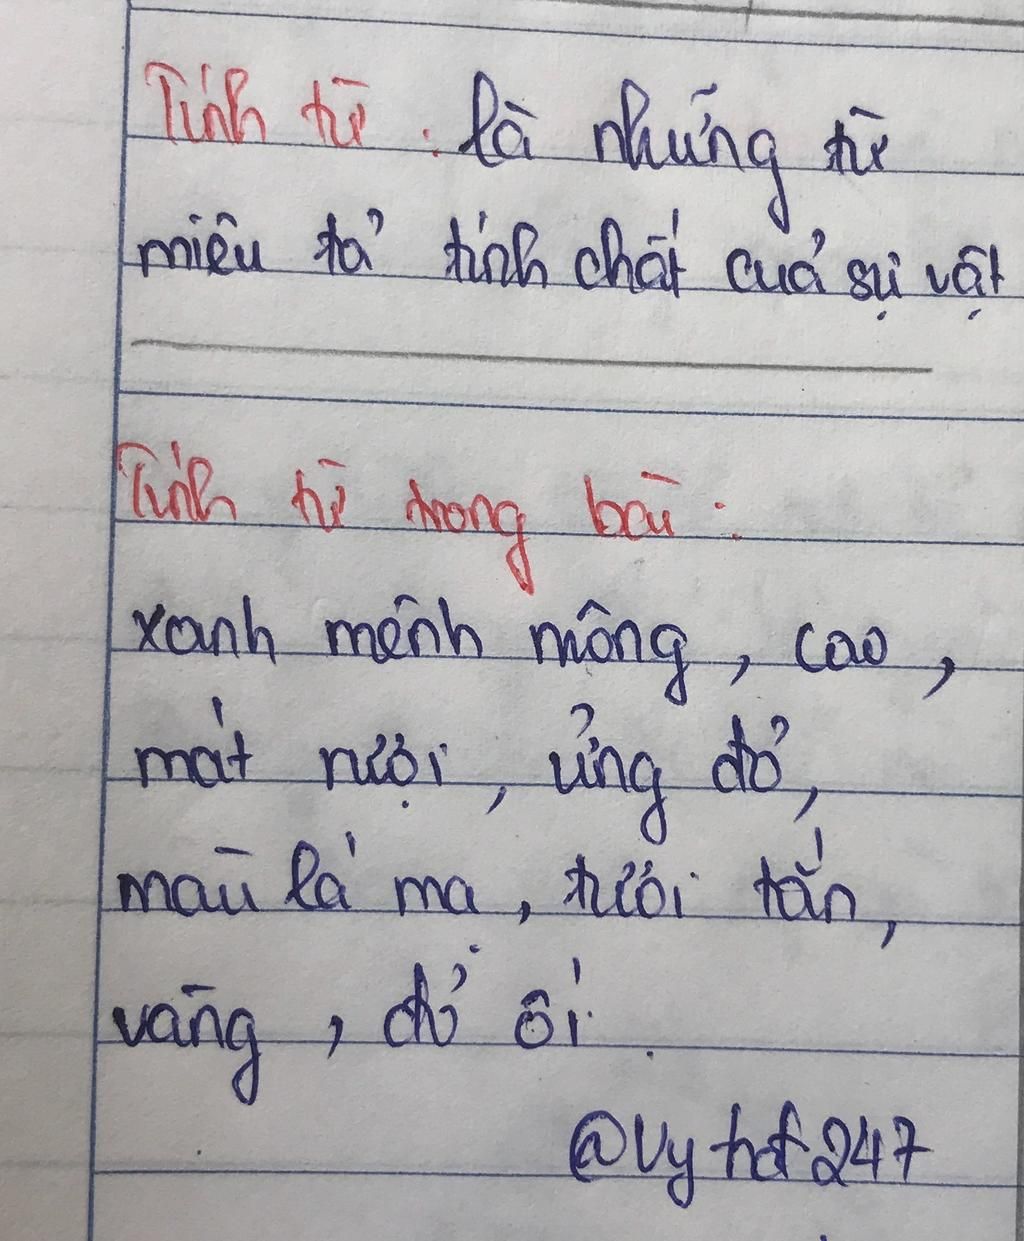 Tính từ : là những từ
miêu tả tính chất của sự vật
Tính từ trong bài :
xanh mênh mông, cao,
mát rượi, ửng đỏ,
màu lá mạ, tươi tắn,
vàng, đỏ ối.
@Vyhot247